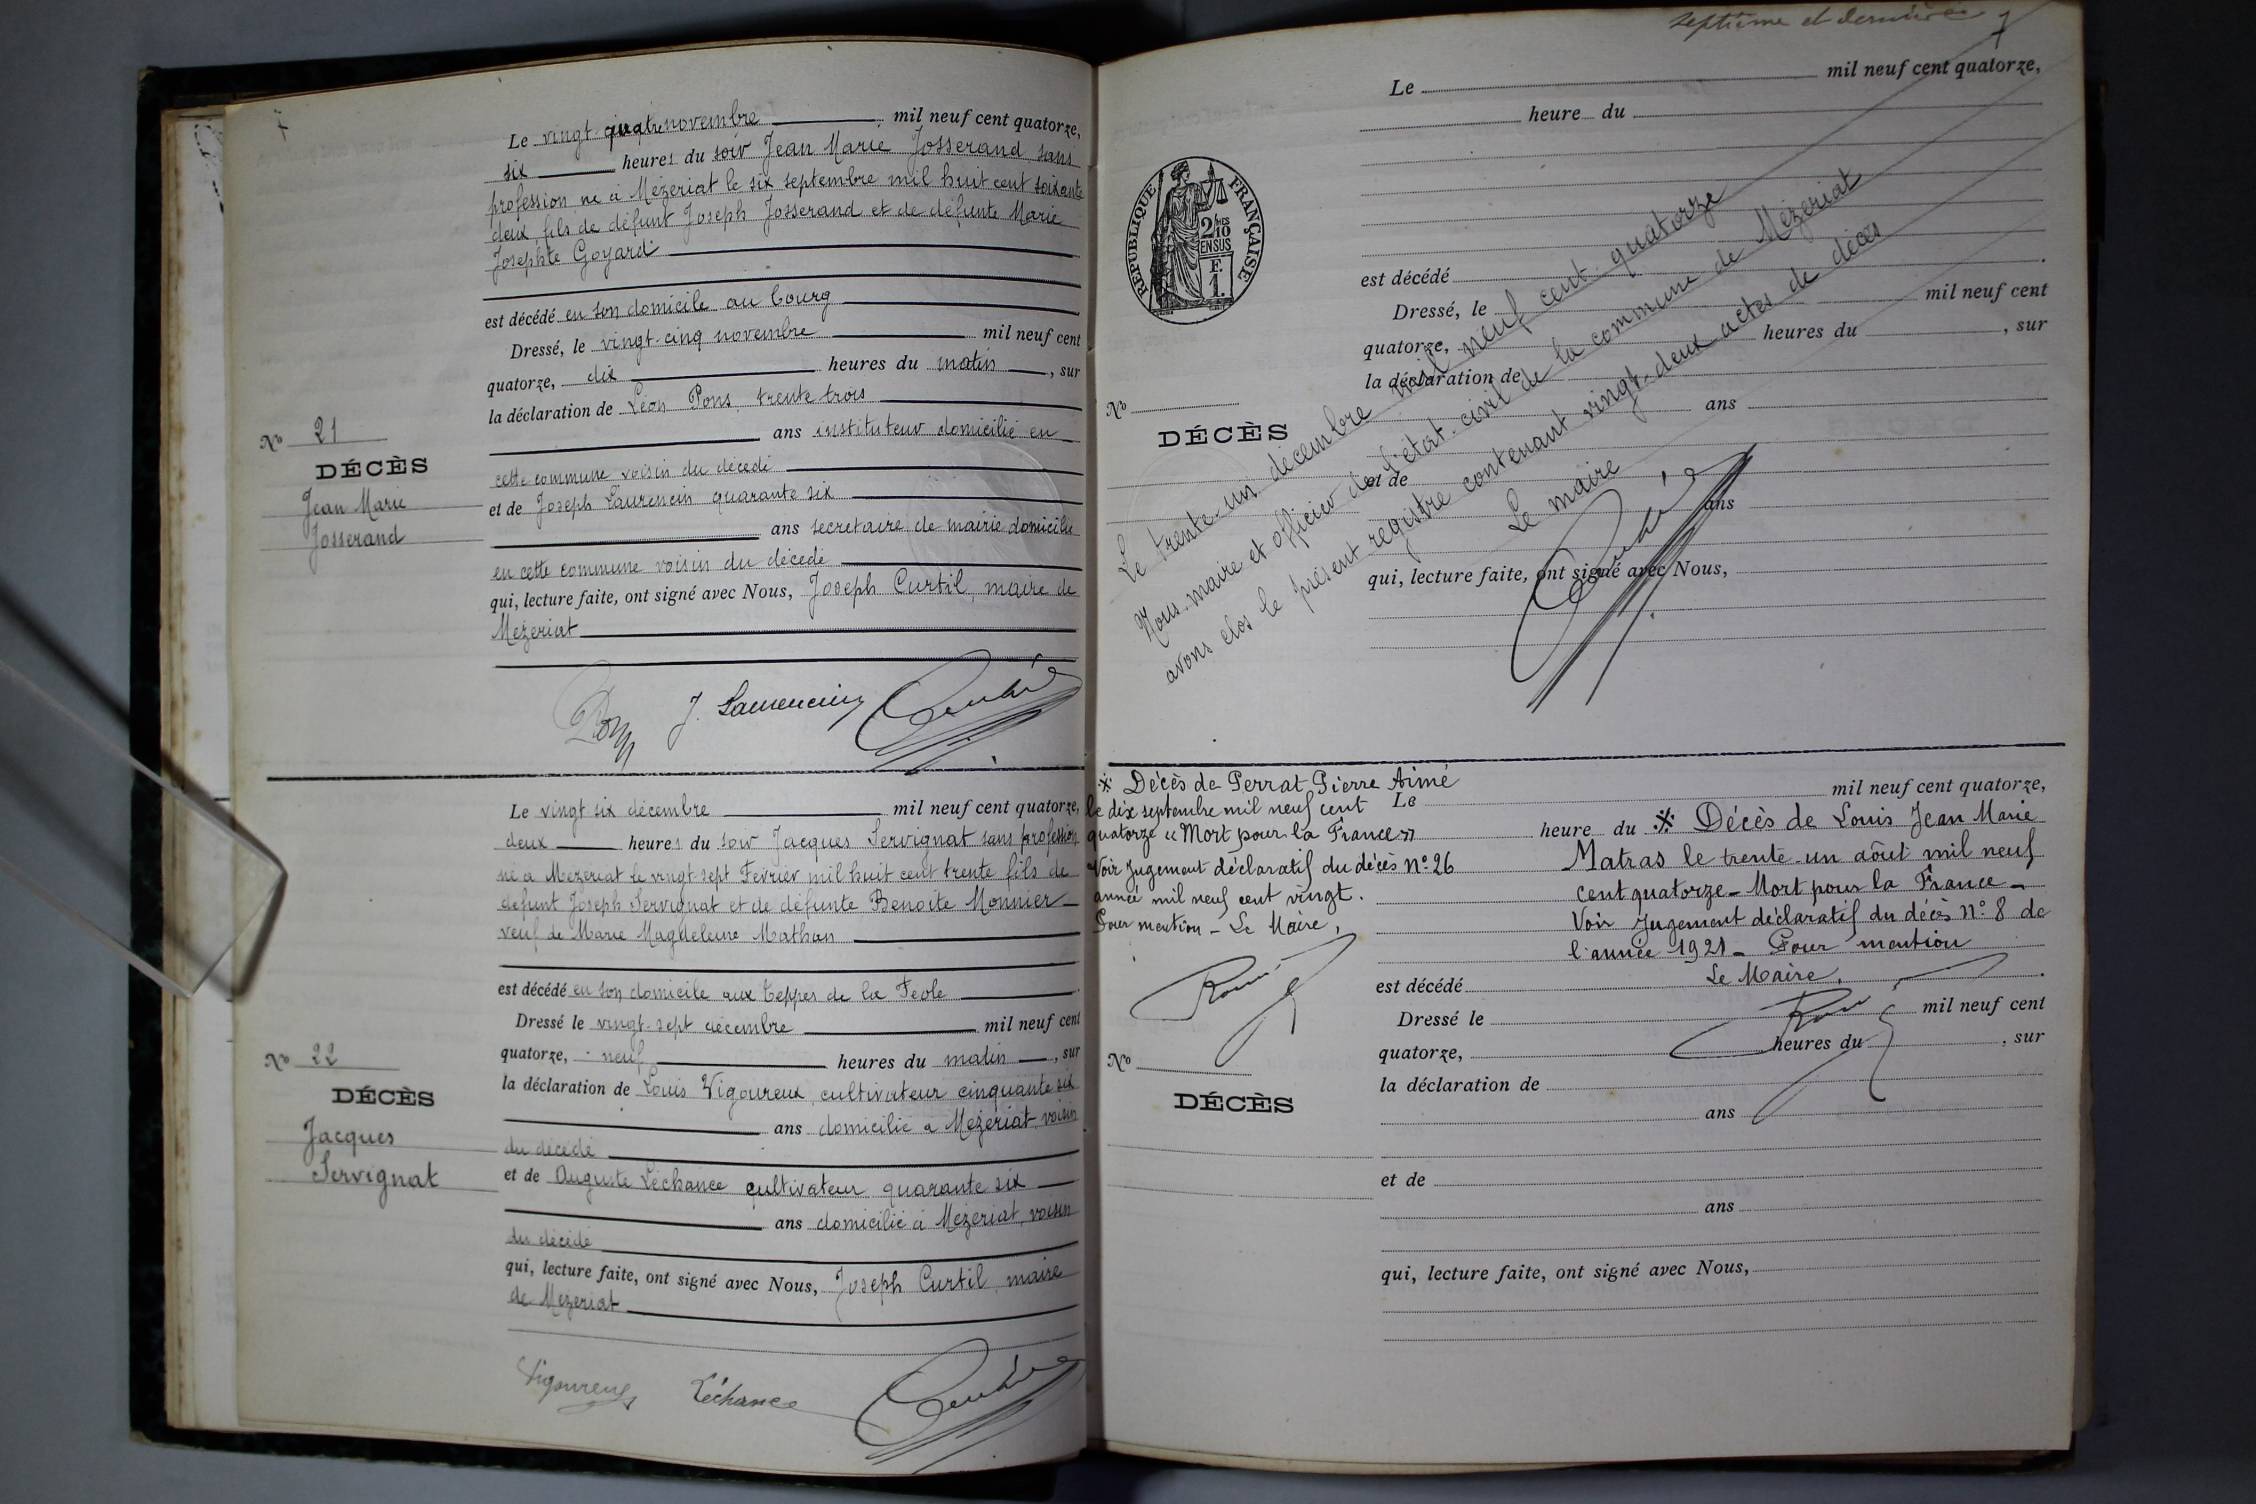 7
Le vingt-quatre novembre mil neuf cent quatorze,
six heures du soir Jean Marie Josserand sans
profession né à Mézeriat le six septembre mil huit cent soixante
deux, fils de défunt Joseph Josserand et de défunte Marie
Josephte Goyard
est décédé en son domicile au bourg
Dressé, le vingt-cinq novembre mil neuf cent
quatorze, dix heures du matin, sur
la déclaration de Léon Pons, trente trois
ans instituteur domicilié en
cette commune voisin du décédé
et de Joseph Laurencin quarante six
ans secretaire de mairie domicilié
en cette commune voisin du décédé
qui, lecture faite, ont signé avec Nous, Joseph Curtil, maire de
Mézeriat
No 21
DÉCÈS
Jean Marie
Josserand
Pons J. Laurencin Curtil
Le vingt six décembre mil neuf cent quatorze,
deux heures du soir Jacques Servignat sans profession
né à Mézeriat le vingt sept Fevrier mil huit cent trente fils de
defunt Joseph Servignat et de défunte Benoite Monnier
veuf de Marie Magdeleine Mathan
est décédé en son domicile aux Teppes de la Feole
Dressé le vingt-sept décembre mil neuf cent
quatorze, neuf heures du matin, sur
la déclaration de Louis Vigoureux, cultivateur cinquante six
ans domicilié à Mézériat, voisin
du décédé
et de Auguste Léchance cultivateur quarante six
ans domicilié à Mézériat, voisin
du décédé
qui, lecture faite, ont signé avec Nous, Joseph Curtil, maire
de Mézeriat
No 22
DÉCÈS
Jacques
Servignat
Vigoureux Léchance Curtil
septième et dernière
Le mil neuf cent quatorze,
heure du
RÉPUBLIQUE FRANÇAISE
2/10
EN SUS
F.
1.
est décédé
Dressé, le mil neuf cent
quatorze, heures du , sur
la déclaration de
ans
et de
ans
qui, lecture faite, ont signé avec Nous,
No
DÉCÈS
Le trente-un décembre mil neuf cent quatorze
Nous maire et officier de l'état-civil de la commune de Mézeriat
avons clos le présent registre contenant vingt-deux actes de décès
Le maire
Curtil
※ Décès de Perrat Pierre Aimé
le dix septembre mil neuf cent
quatorze « Mort pour la France »
Voir Jugement déclaratif du décès n° 26
année mil neuf cent vingt.
Pour mention - Le Maire,
Le mil neuf cent quatorze,
heure du ※ Décès de Louis Jean Marie
Matras le trente-un août mil neuf
cent quatorze - Mort pour la France -
Voir Jugement déclaratif du décès N° 8 de
l'année 1921 - Pour mention
Le Maire,
est décédé
Dressé le mil neuf cent
quatorze, heures du , sur
la déclaration de
ans
et de
ans
qui, lecture faite, ont signé avec Nous,
No
DÉCÈS